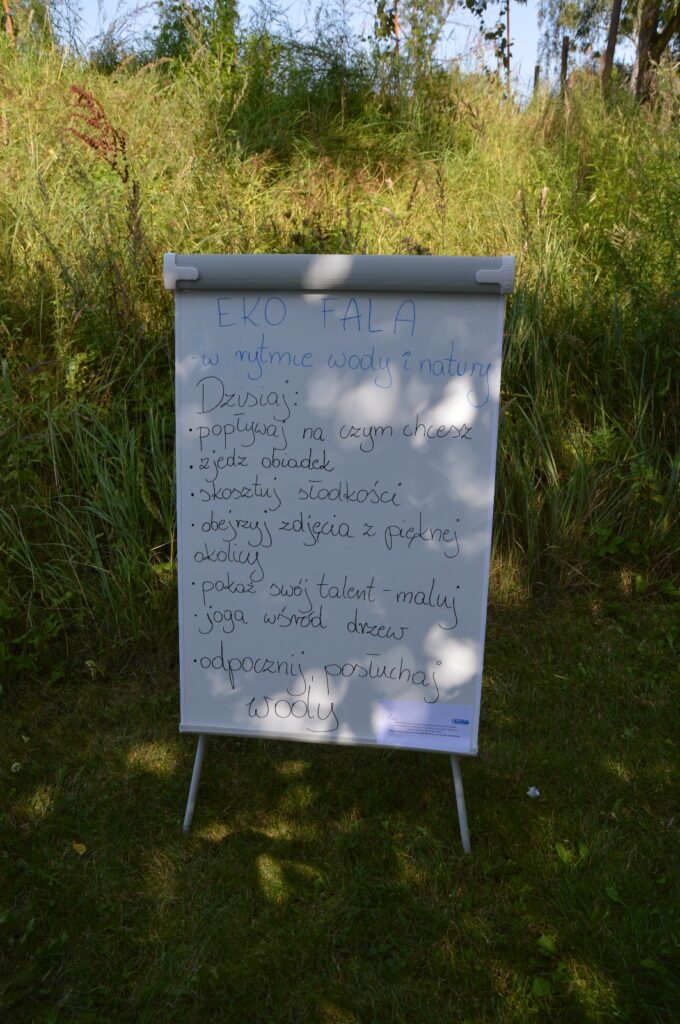 EKO FALA
- w rytmie wody i natury
Dzisiaj:
• popływaj na czym chcesz
• zjedz obiadek
• skosztuj słodkości
• obejrzyj zdjęcia z pięknej
okolicy
• pokaż swój talent - maluj
• joga wśród drzew
• odpocznij, posłuchaj
wody